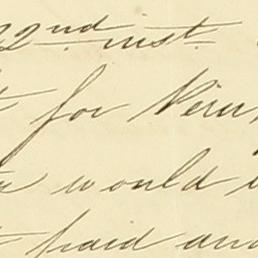 22nd inst.
for Peru
would
paid and